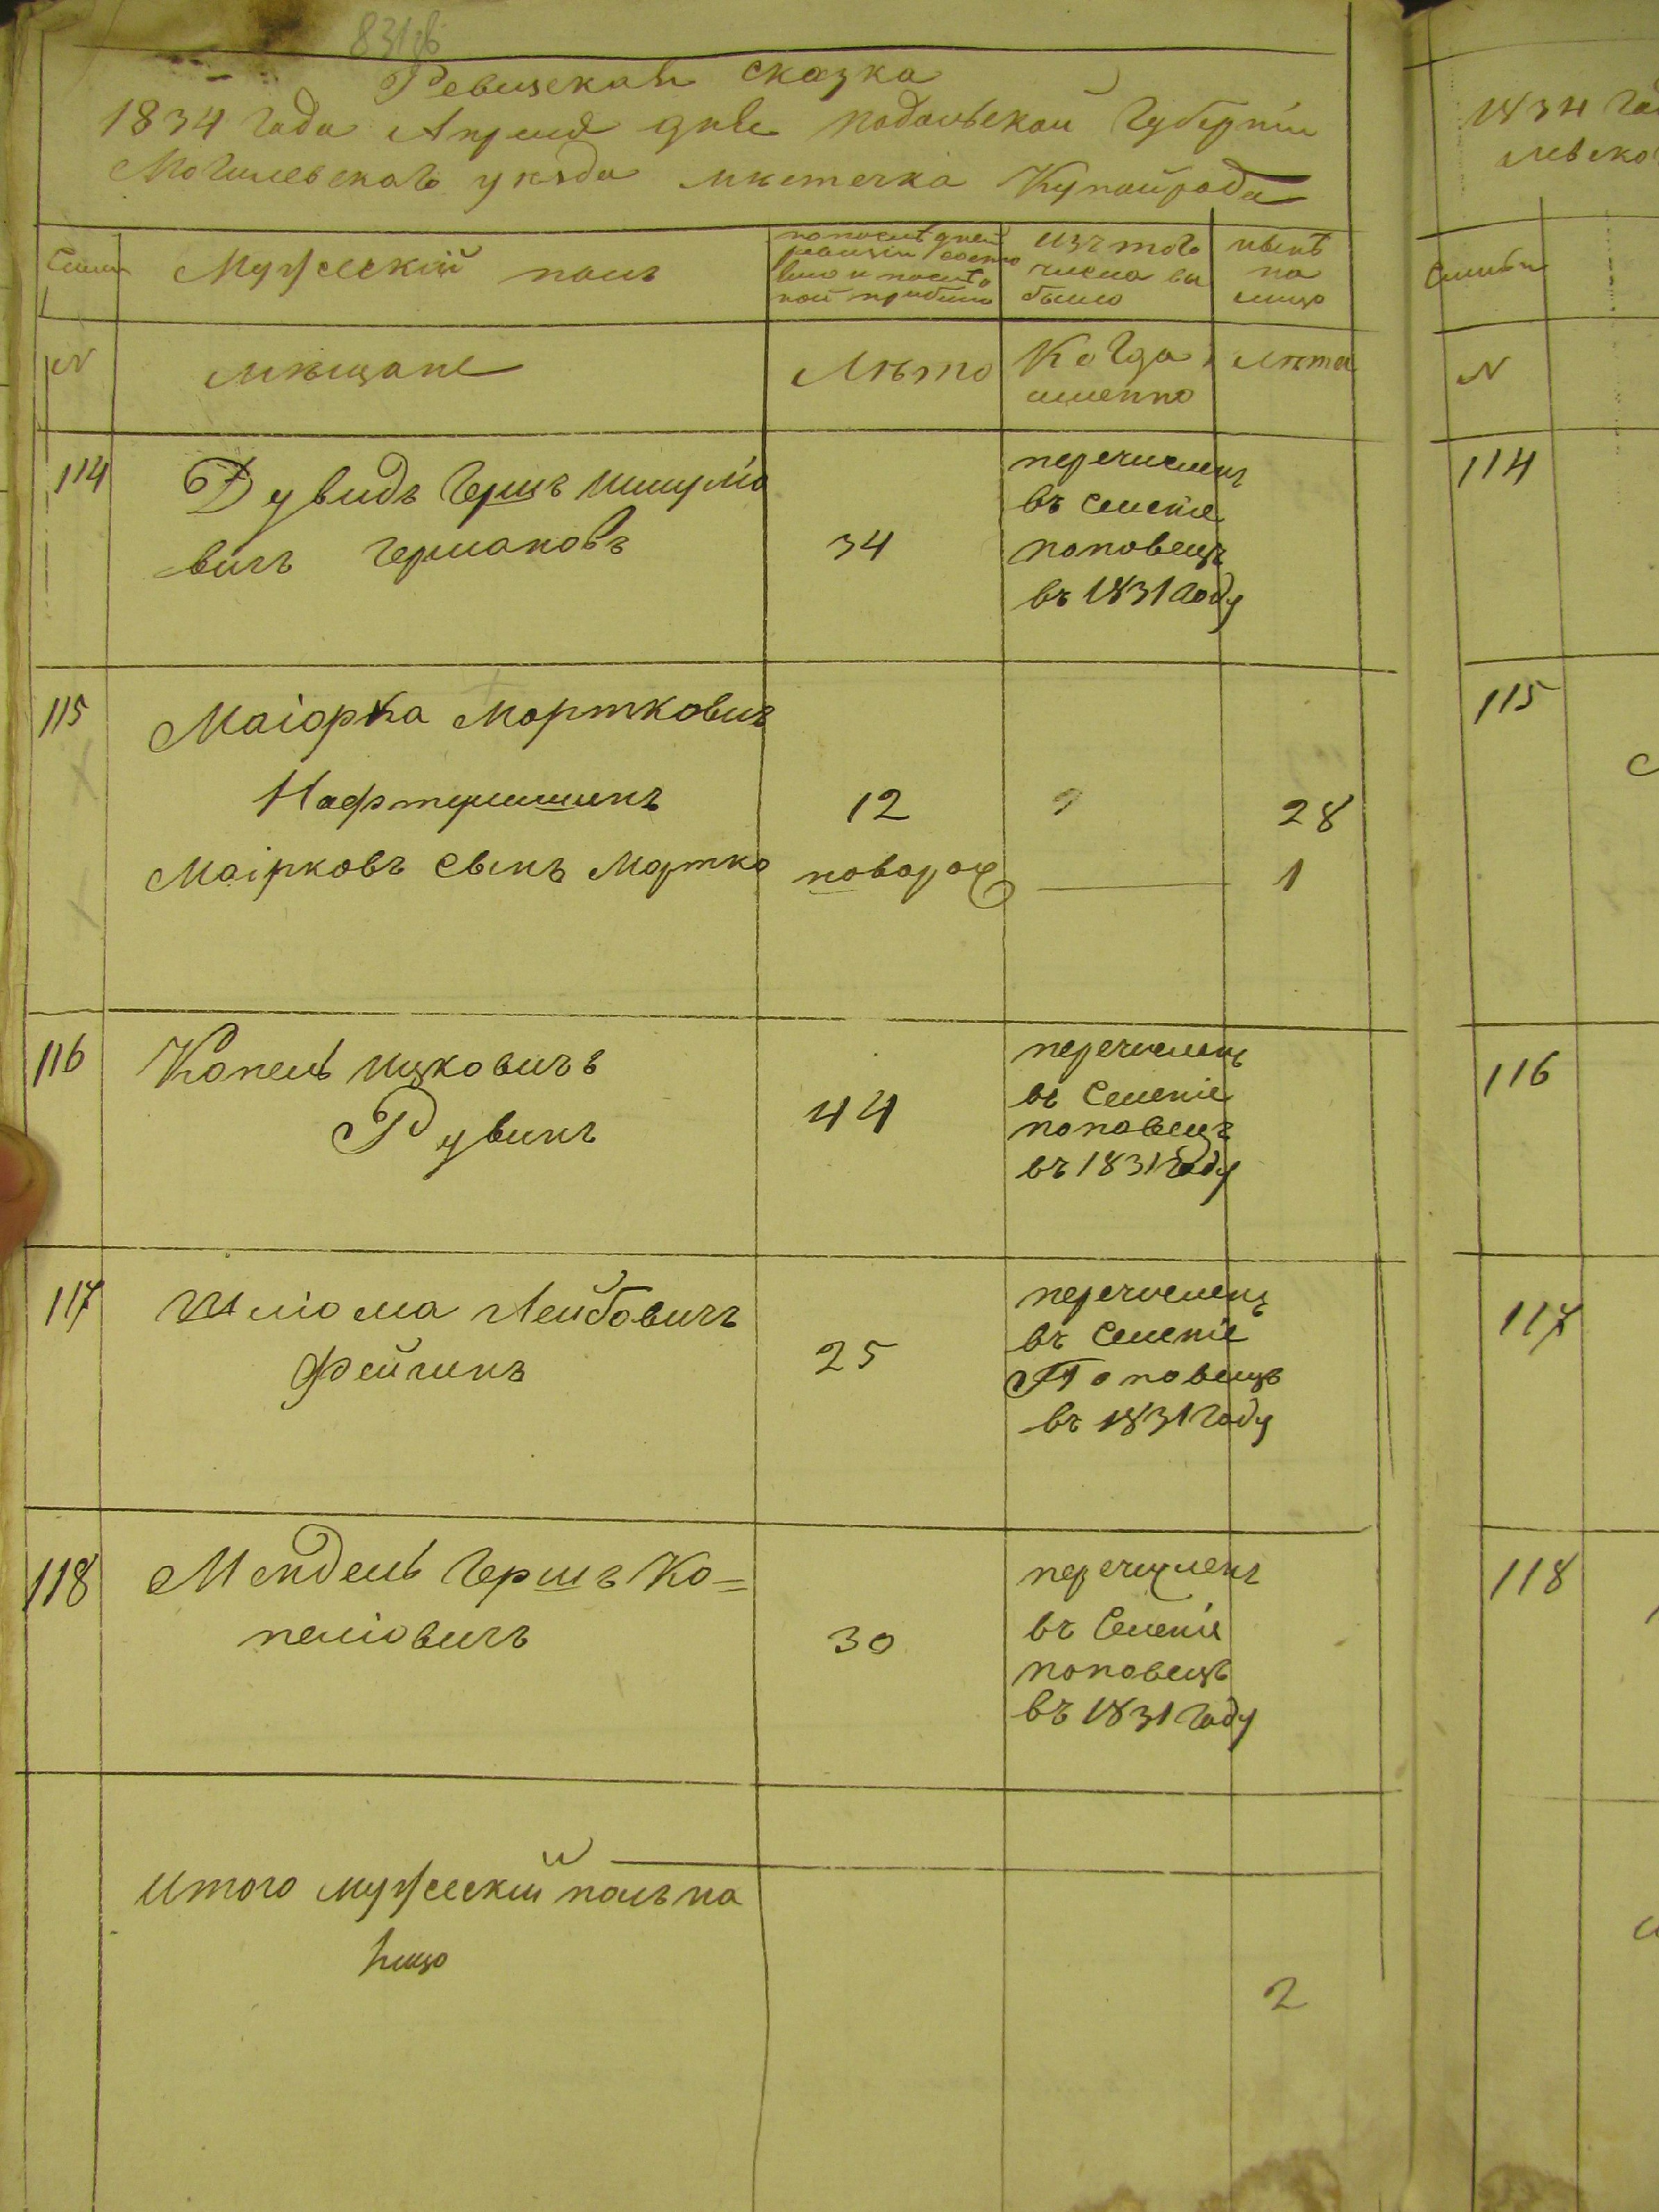 831 об
Ревизская сказка
1834 года Апреля дня Подольской Губернiи
Могилевскаго уѣзда мѣстечка Купайрода
Семьи
Мужеский полъ
по последней ревизiи состояло и после того прибыло
изъ того числа выбыло
нынѣ на лицо
N
мѣщане
Лѣто
Когда именно
лѣта
114
Дувидъ Гершъ Шмулiо
вичъ Германовъ
34
перечисленъ
въ Селенiе
поповецъ
въ 1831 году
115
Маiорка Мортковичъ
Нафтулишинъ
12
28
Маiрковъ сынъ Мортко
новорож
1
116
Копель Ицковичъ
Рувинъ
44
перечисленъ
въ Селенiе
поповецъ
въ 1831 году
117
Шлiома Лейбовичъ
Фейгинъ
25
перечисленъ
въ Селенiе
Поповецъ
въ 1831 году
118
Мендель Гершъ Ко=
пелiовичъ
30
перечисленъ
въ Селенiе
поповецъ
въ 1831 году
Итого мужеский полъ на
лицо
2
1834 го
левско
Семьи
N
114
115
116
117
118